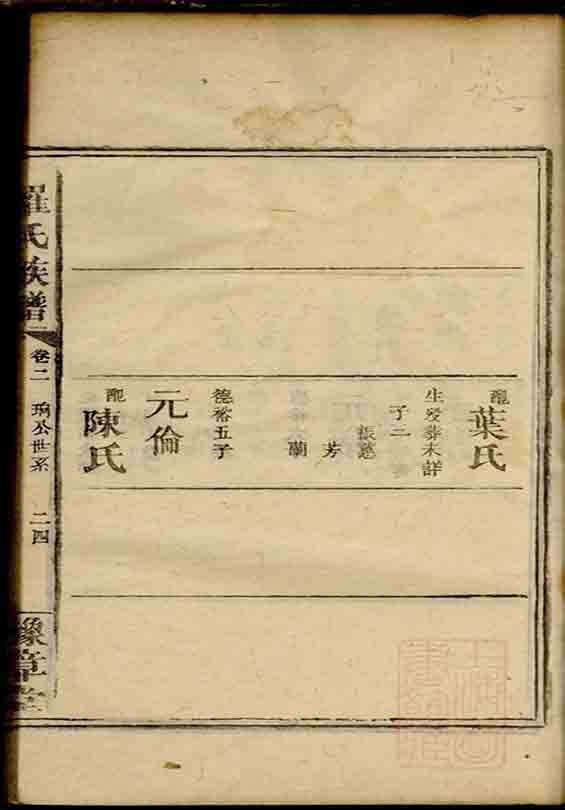 配葉氏
生歿葬未詳
子二
振聰
芳
蘭
德裕五子
元倫
配陳氏
羅氏族譜
卷二
珦公世系
二四
豫章堂